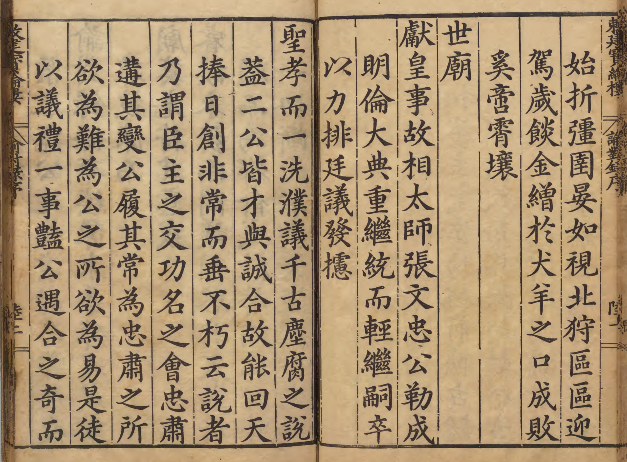 始折彊圉晏如視北狩區區迎
駕歲餤金繒於犬羊之口成敗
奚啻霄壤
世廟
獻皇事故相太師張文忠公勒成
明倫大典重繼統而輕繼嗣卒
以力排廷議發攄
聖孝而一洗濮議千古塵腐之說
葢二公皆才與誠合故能回天
捧日創非常而垂不朽云說者
乃謂臣主之交功名之會忠肅
遘其變公履其常為忠肅之所
欲為難為公之所欲為易是徒
以議禮一事豔公遇合之奇而